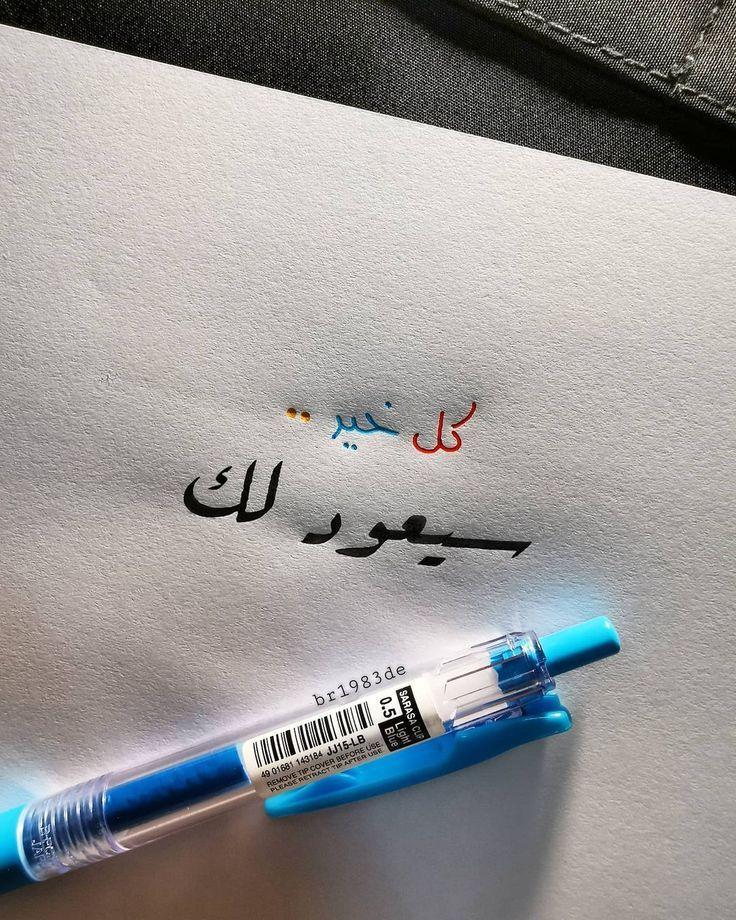 كل خير ..
سيعود لك
br1983de
SARASA CLIP
0.5 Light Blue
49 01681 143184 JJ15-LB
REMOVE TIP COVER BEFORE USE.
PLEASE RETRACT TIP AFTER USE.